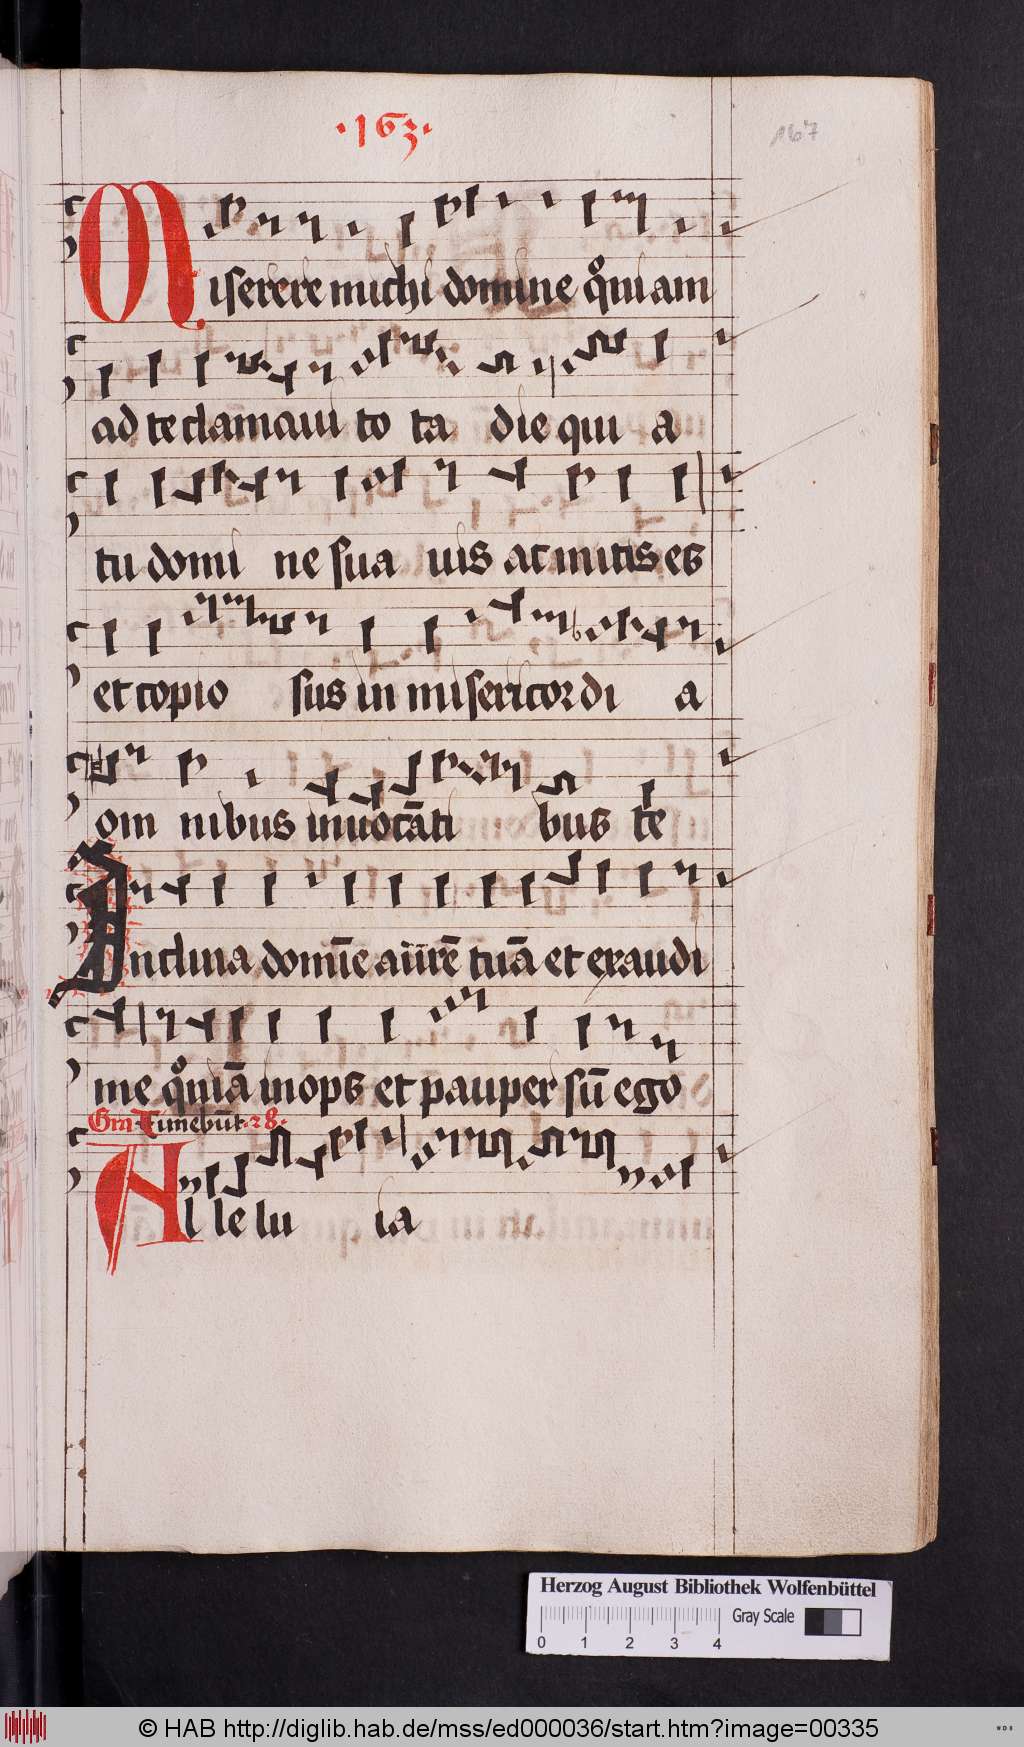 ·163·
167
Miserere michi domine qm̊ quiam
ad te clamaui to ta die qui a
tu domi ne sua uis ac mitis es
et copio sus in misericordi a
om nibus inuocāti bus te
Inclina domīe aurē tuā et exaudi
me qo̊niā inops et pauper sū ego
Gra Timebūt·28·
Al le lu ia
Herzog August Bibliothek Wolfenbüttel
0 1 2 3 4 Gray Scale
© HAB http://diglib.hab.de/mss/ed000036/start.htm?image=00335